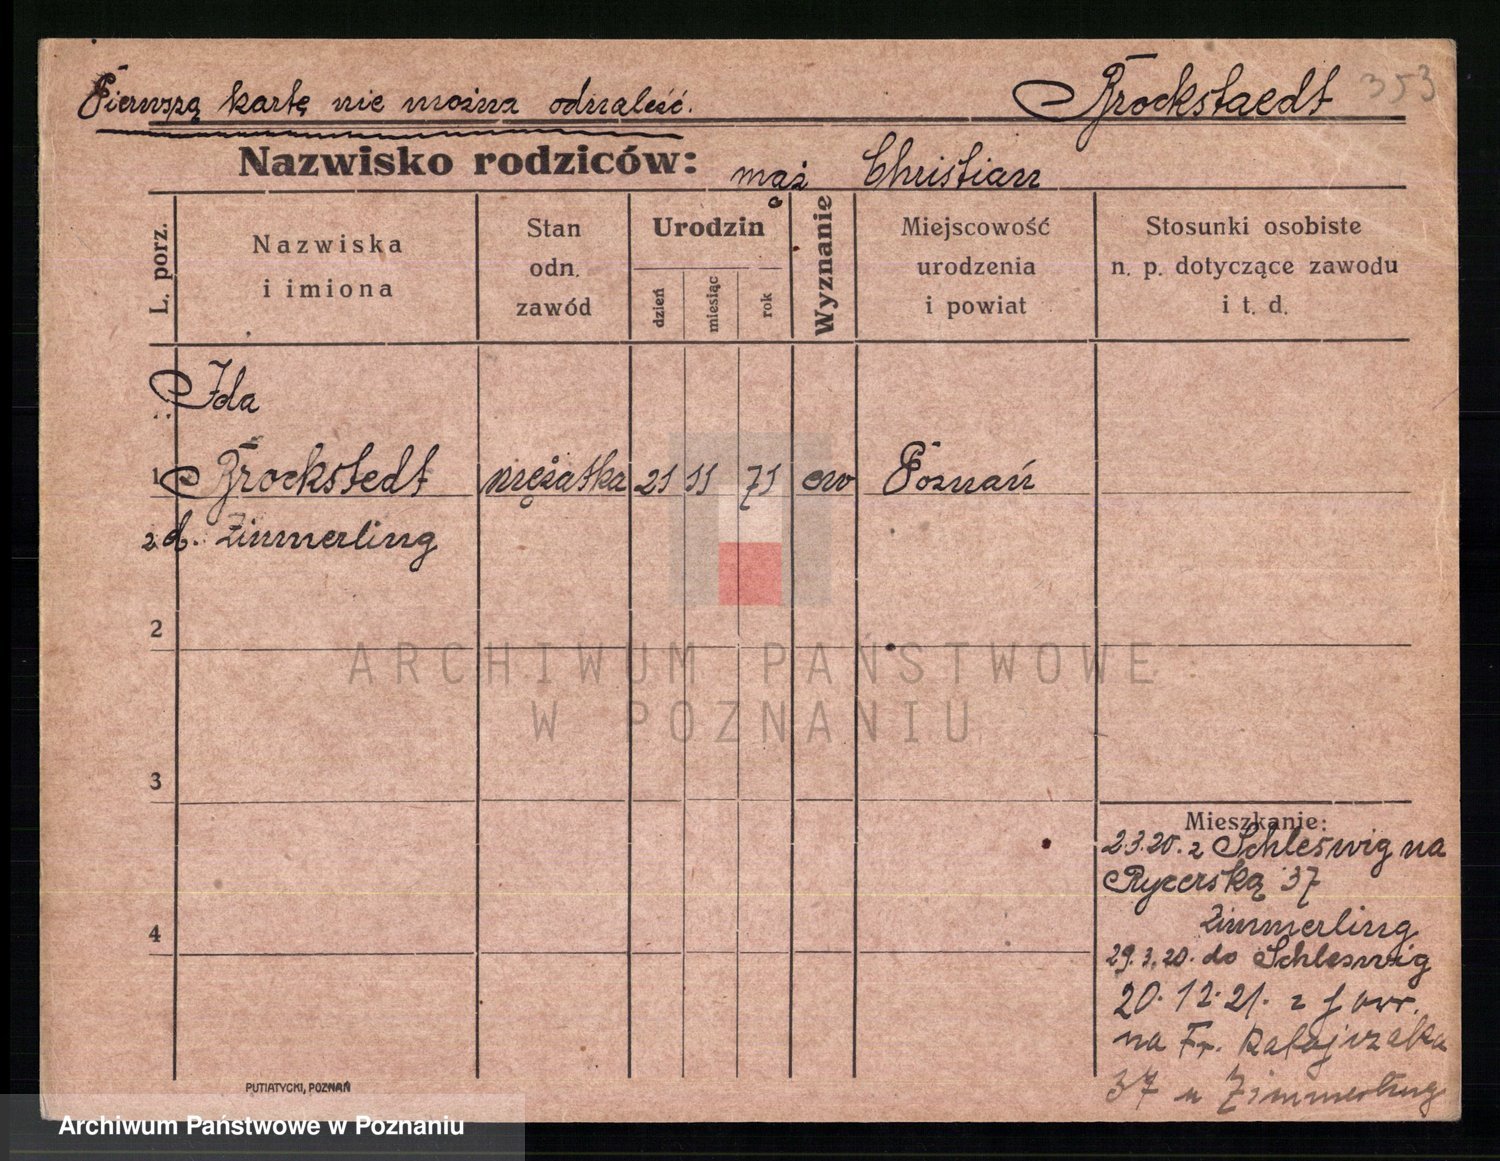 Pierwszą kartę nie można odnaleść.
Brockstaedt 353
Nazwisko rodziców: mąż Christian
L. porz.
Nazwiska
i imiona
Stan
odn.
zawód
Urodzin
dzień
miesiąc
rok
Wyznanie
Miejscowość
urodzenia
i powiat
Stosunki osobiste
n. p. dotyczące zawodu
i t. d.
Ida
1 Brockstedt mężatka 21 11 71 ew Poznań
z d. Zimmerling
2
3
4
Mieszkanie:
23.20. z Schleswig na
Rycerską 37
Zimmerling
29.3.20. do Schleswig
20.12.21. z
na Fr. Ratajczaka
37 u Zimmerling
PUTIATYCKI, POZNAŃ
ARCHIWUM PAŃSTWOWE
W POZNANIU
Archiwum Państwowe w Poznaniu